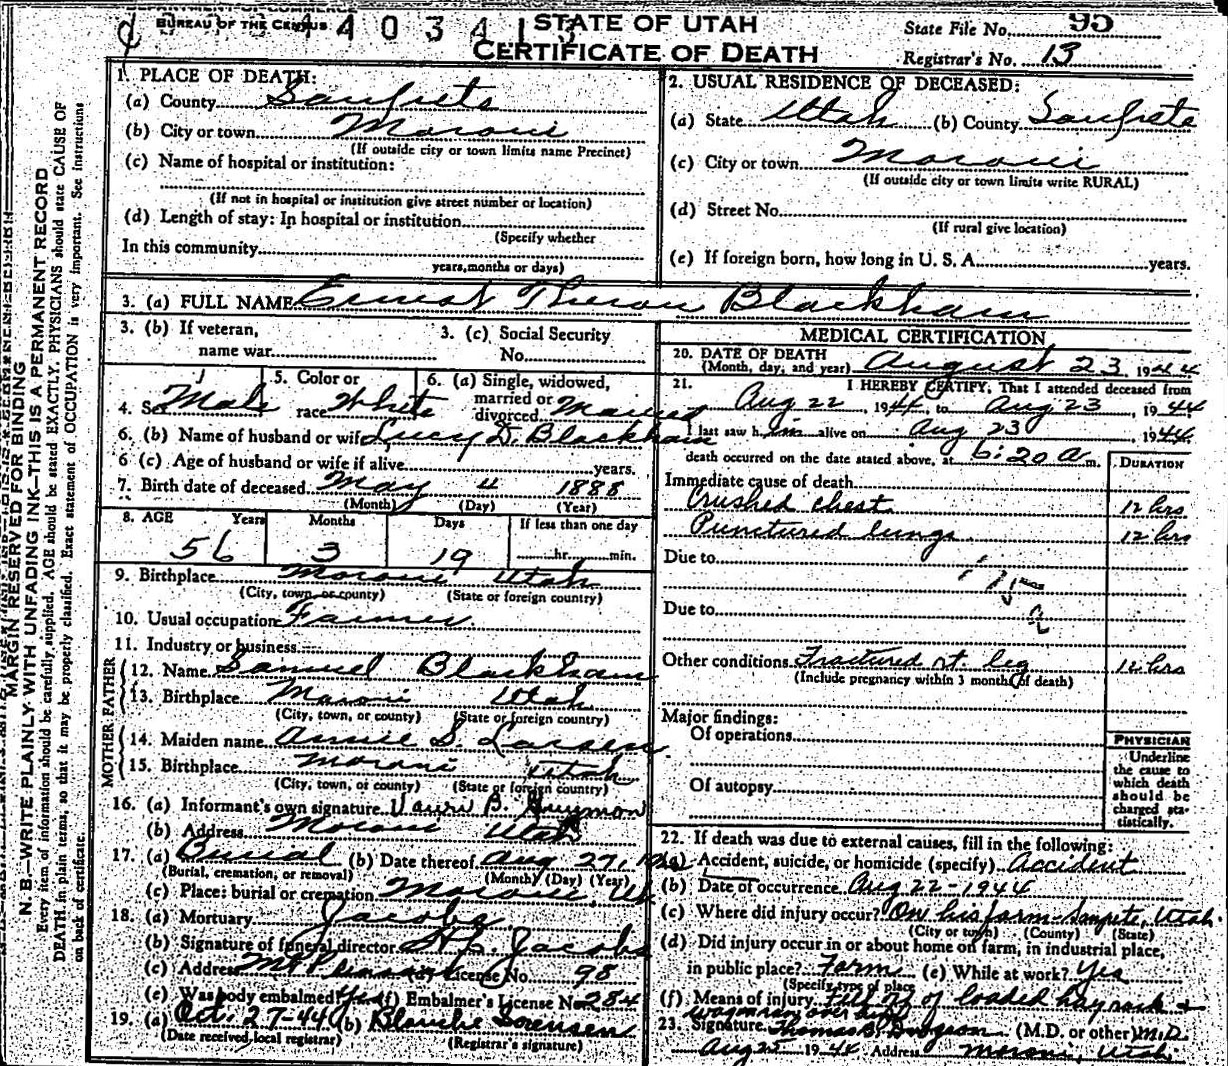 DEPARTMENT OF COMMERCE
BUREAU OF THE CENSUS
4 4 0 3 4 1 3
STATE OF UTAH
CERTIFICATE OF DEATH
State File No. 95
Registrar's No. 13
MARGIN RESERVED FOR BINDING
N. B.—WRITE PLAINLY WITH UNFADING INK—THIS IS A PERMANENT RECORD
Every item of information should be carefully supplied. AGE should be stated EXACTLY. PHYSICIANS should state CAUSE OF
DEATH in plain terms, so that it may be properly classified. Exact statement of OCCUPATION is very important. See instructions
on back of certificate.
1. PLACE OF DEATH:
(a) County Sanpete
(b) City or town Moroni
(If outside city or town limits name Precinct)
(c) Name of hospital or institution:
(If not in hospital or institution give street number or location)
(d) Length of stay: In hospital or institution
(Specify whether
In this community
years, months or days)
2. USUAL RESIDENCE OF DECEASED:
(a) State Utah (b) County Sanpete
(c) City or town Moroni
(If outside city or town limits write RURAL)
(d) Street No.
(If rural give location)
(e) If foreign born, how long in U. S. A. years.
3. (a) FULL NAME Ernest Theron Blackham
3. (b) If veteran,
name war
3. (c) Social Security
No.
4. Sex Male
5. Color or
race White
6. (a) Single, widowed,
married or
divorced Married
6. (b) Name of husband or wife Lucy D. Blackham
6 (c) Age of husband or wife if alive years.
7. Birth date of deceased May 4 1888
(Month) (Day) (Year)
8. AGE Years Months Days If less than one day
56 3 19 hr. min.
9. Birthplace Moroni Utah
(City, town, or county) (State or foreign country)
10. Usual occupation Farmer
11. Industry or business
FATHER
12. Name Samuel Blackham
13. Birthplace Moroni Utah
(City, town, or county) (State or foreign country)
MOTHER
14. Maiden name Annie S. Larsen
15. Birthplace Moroni Utah
(City, town, or county) (State or foreign country)
16. (a) Informant's own signature B.
(b) Address Moroni Utah
17. (a) Burial (b) Date thereof Aug 27, 1944
(Burial, cremation, or removal) (Month) (Day) (Year)
(c) Place: burial or cremation Moroni, Ut
18. (a) Mortuary Jacobs
(b) Signature of funeral director Jacobs
(c) Address Mt Pleasant License No. 98
(e) Was body embalmed? Yes (f) Embalmer's License No. 284
19. (a) Oct. 27-44 (b) Blanche Sorensen
(Date received local registrar) (Registrar's signature)
MEDICAL CERTIFICATION
20. DATE OF DEATH
(Month, day, and year) August 23, 1944
21. I HEREBY CERTIFY, That I attended deceased from
Aug 22, 1944, to Aug 23, 1944
I last saw him alive on Aug 23 1944
death occurred on the date stated above, at 6:20 A m.
DURATION
Immediate cause of death
Crushed chest 12 hrs
Punctured lungs 12 hrs
Due to
Due to
Other conditions Fractured rt leg 12 hrs
(Include pregnancy within 3 months of death)
Major findings:
Of operations
Of autopsy
PHYSICIAN
Underline
the cause to
which death
should be
charged sta-
tistically.
22. If death was due to external causes, fill in the following:
(a) Accident, suicide, or homicide (specify) Accident
(b) Date of occurrence Aug 22-1944
(c) Where did injury occur? On his farm-Sanpete, Utah
(City or town) (County) (State)
(d) Did injury occur in or about home on farm, in industrial place,
in public place? Farm (e) While at work? Yes
(Specify type of place
(f) Means of injury Fell off of loaded hay rack +
wagon ran over him
23. Signature Thomas B. (M.D. or other) M.D.
Aug 25 1944 Address Moroni, Utah